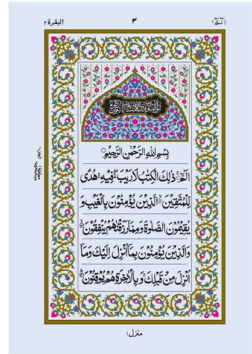 البقرة ٢
٣
الٓمّٓ ١
بِسْمِ اللّٰهِ الرَّحْمٰنِ الرَّحِیْمِ
الٓمّٓ ذٰلِكَ الْكِتٰبُ لَا رَیْبَ فِیْهِ هُدًی
لِّلْمُتَّقِیْنَ الَّذِیْنَ یُؤْمِنُوْنَ بِالْغَیْبِ وَ
یُقِیْمُوْنَ الصَّلٰوةَ وَمِمَّا رَزَقْنٰهُمْ یُنْفِقُوْنَ
وَالَّذِیْنَ یُؤْمِنُوْنَ بِمَاۤ اُنْزِلَ اِلَیْكَ وَمَاۤ
اُنْزِلَ مِنْ قَبْلِكَ وَبِالْاٰخِرَةِ هُمْ یُوْقِنُوْنَ
منزل ١